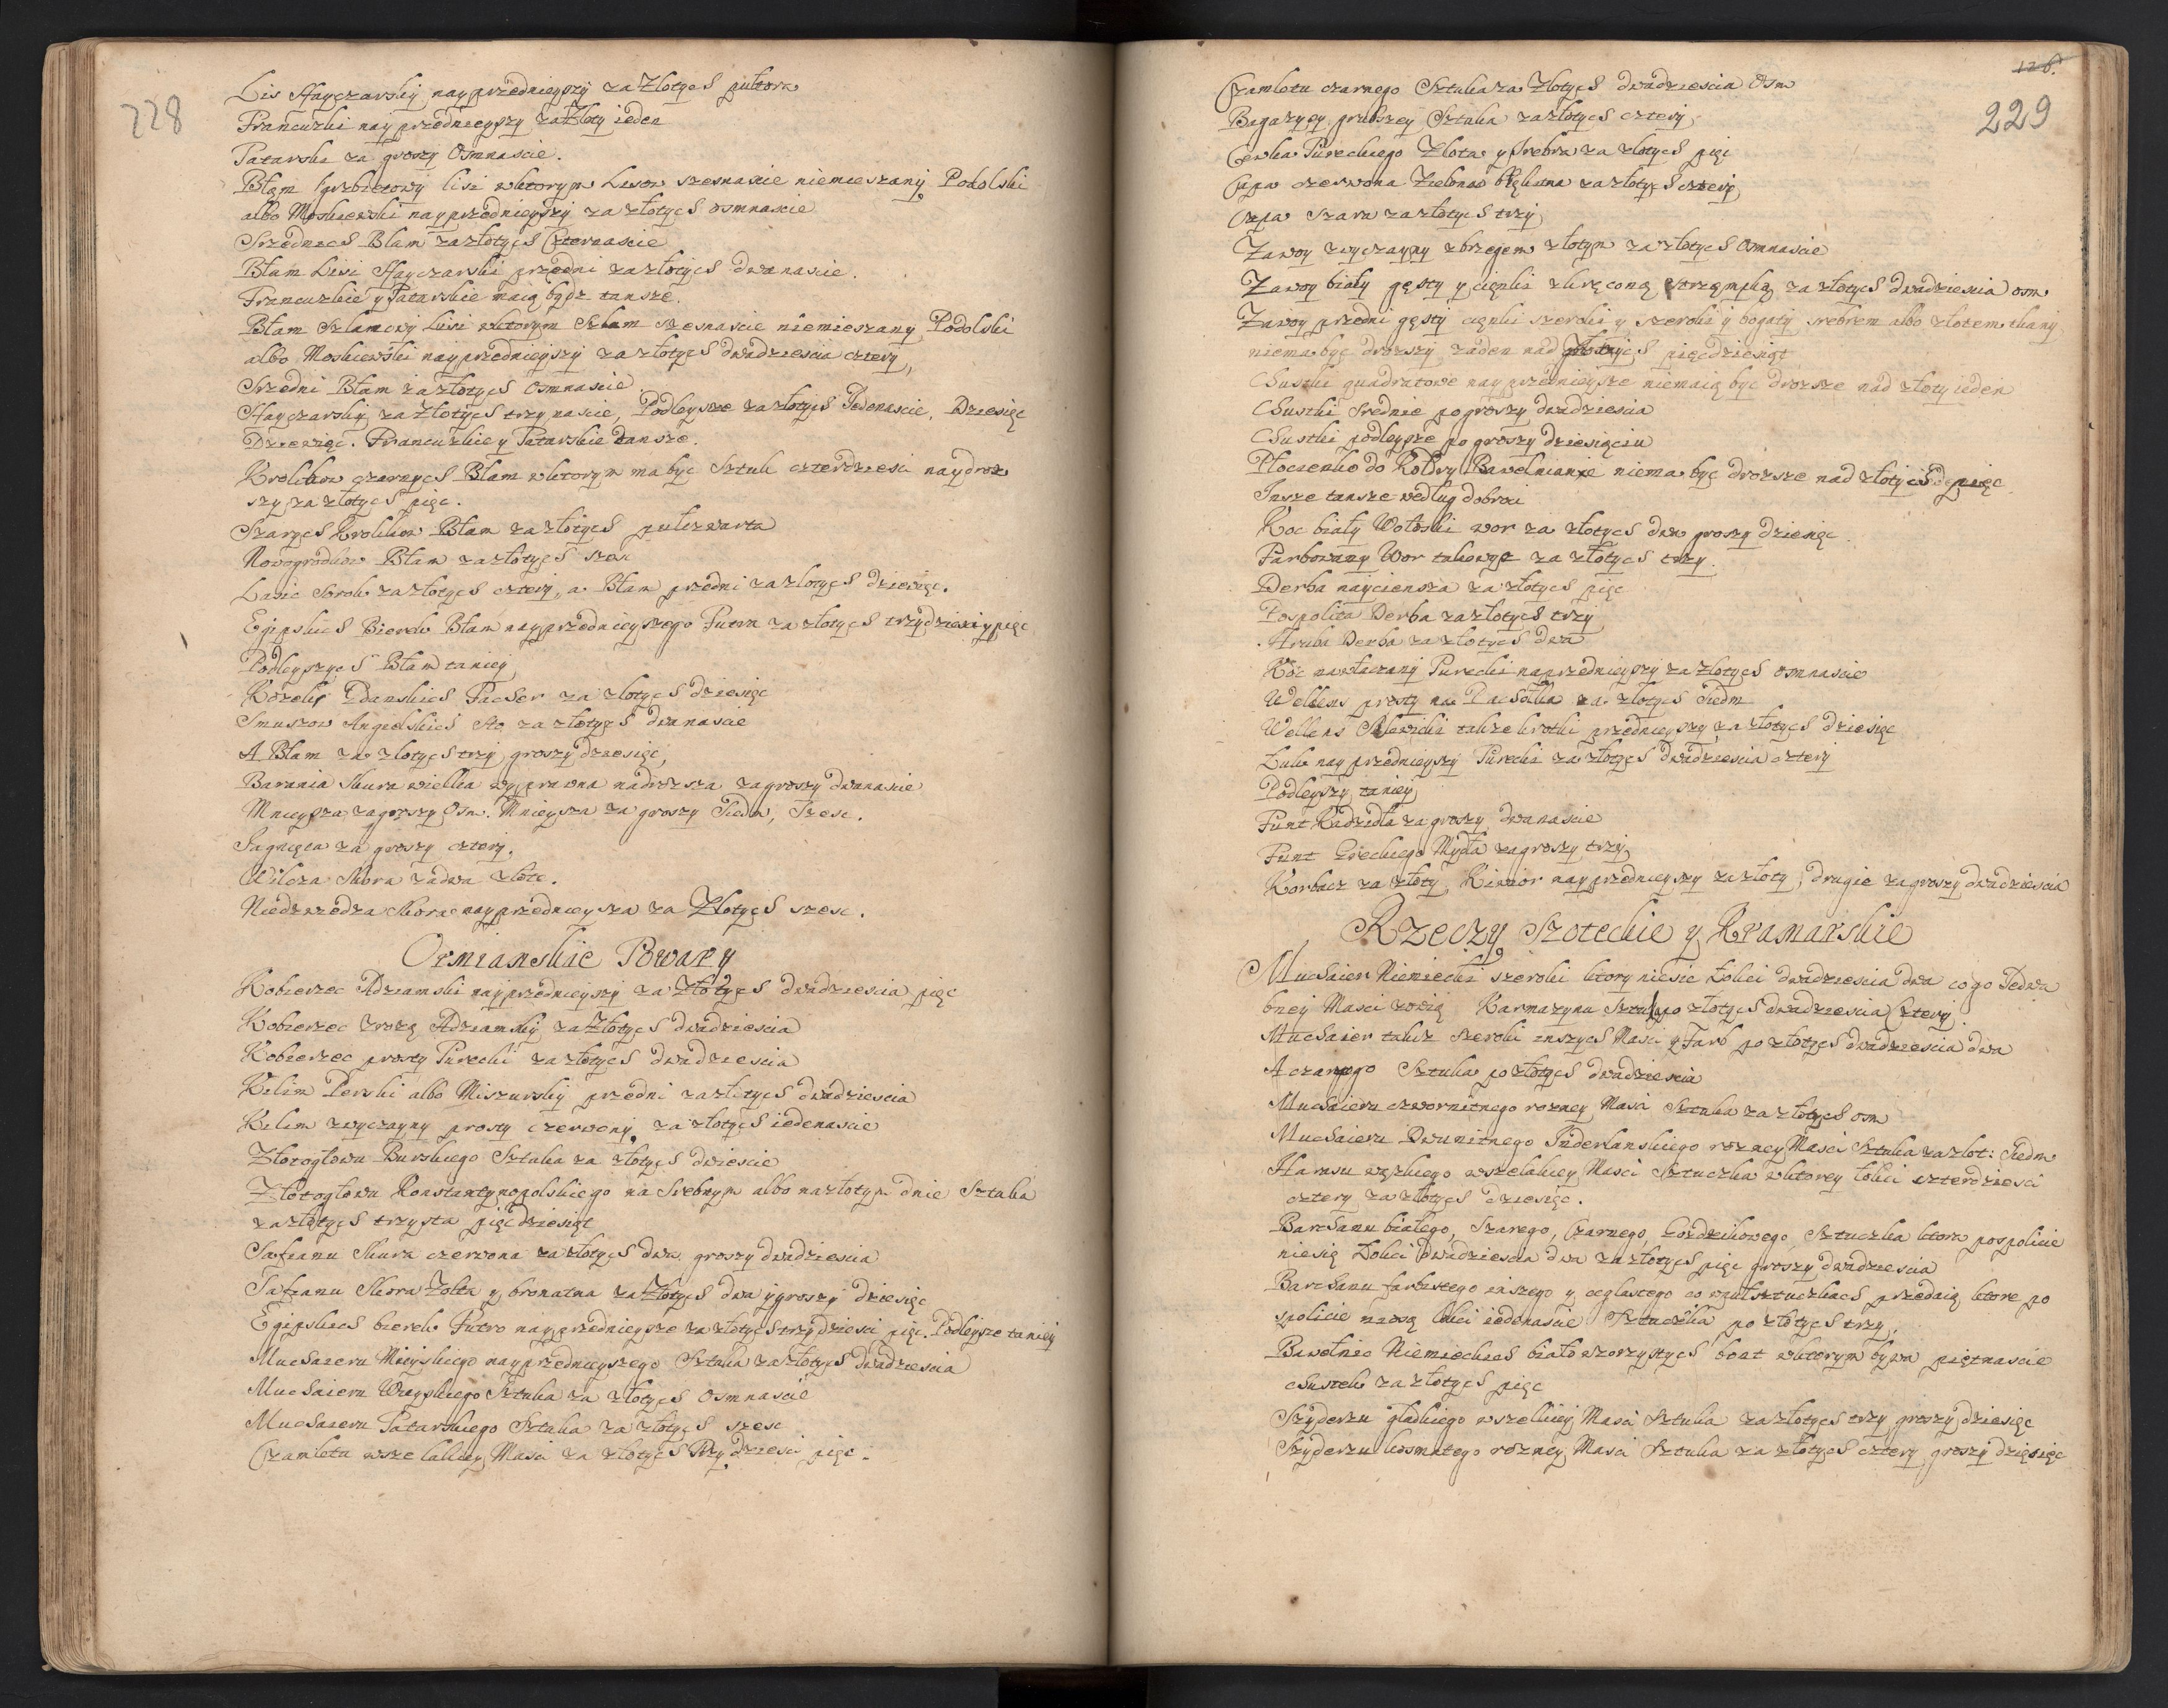 228
Lis Hayczarskij nayprzednieyszy za Złotych pułtora
Francuzki nayprzednieyszy za Złoty ieden
Tatarski za groszy Osmnascie.
Błam grzbietowy lisi wktorym Lisow szesnascie niemieszany Podolski
albo Moskiewski nayprzednieyszy za złotych osmnascie
Srzednich Błam za złotych Czternascie
Błam Lisi Hayczarski przedni za złotych dwanascie.
Francuzkie y Tatarskie maią bydz tansze.
Błam Szlamowy Lisi wktorym Szlam szesnascie niemieszany Podolski
albo Moskiewski nayprzednieyszy za złotych dwadziescia cztery,
Srzedni Błam za złotych Osmnascie.
Hayczarskij za Złotych trzynascie, Podleysze za złotych Jedenascie. Dziesięc
Dziewięc. Francuzkie y Tatarskie tansze.
Krolikow czarnych Błam wktorym ma byc Sztuk czterdziesci naydroz
szy, za złotych pięc.
Szarych Krolikow Błam za złotych pułczwarta
Nowogrodkow Błam za złotych szesc
Lasic Sorok za złotych cztery, a Błam przedni za złotych dziewięc.
Egipskich Bierek Błam nayprzednieyszego Futra za złotych trzydziesci y pięc
Podleyszych Błam taniey
Kozelij Gdanskich Pacher za złotych dziesięc
Smuszow Angielskich Sto za złotych dwanascie
A Błam za złotych trzy groszy dziesięc,
Barania Skura wielka wyprawna nadrozsza za groszy dwanascie
Mnieysza za groszy Osm. Mnieysza za groszy Siedm, Szesc.
Jagnięca za groszy cztery.
Wilcza Skora za dwa złote.
Niedzwiedza Skora nayprzednieysza za Złotych szesc.
Ormianskie Towary
Kobierzec Adziamski nayprzednieyszy za Złotych dwadziescia pięc
Kobierzec zrozą Adziamskij za Złotych dwadziescia
Kobierzec prosty Turecki za złotych dwadziescia
Kilim Perski albo Miszurskij przedni za złotych dwadziescia
Kilim zwyczayny prosty czerwony za złotych iedenascie
Złotogłowu Burskiego Sztuka za złotych dwiescie
Złotogłowu Konstantynopolskiego na Srebnym albo na złotym dnie Sztuka
za złotych trzysta pięcdziesiąt
Safianu Skura czerwona za złotych dwa groszy dwadziescia
Safianu Skora Zołta y bronatna za Złotych dwa y groszy dziesięc
Egipskich bierek Futro nayprzednieysze za złotych trzydziesci pięc. Podleysze taniey
Muchaieru Mieyskiego nayprzednieyszego Sztuka za złotych dwadziescia
Muchaieru Wieyskiego Sztuka za złotych osmnascie
Muchaieru Tatarskiego Sztuka za złotych szesc
Czamletu wszelakiey Masci za złotych Trzydziesci pięc.
126.
229
Czamlotu czarnego Sztuka za Złotych dwadziescia Osm
Bagazyey grubszey Sztuka za złotych cztery
Cewka Tureckiego Złota y srebra za złotych pięc
Czapa czerwona Zielona błękitna za złotych cztery
Czapa Szara za złotych trzy
Zawoy zwyczayny zbrzegiem złotym za złotych Osmnascie
Zawoy biały gęsty y cięnki zkręconą strzępką za złotych dwadziescia osm
Zawoy przedni gęsty cięnki szeroki y szeroki y bogaty srebrem albo złotem tkany
niema byc drozszy zaden nad złotych pięcdziesiąt
Chustki quadratowe nayprzednieysze niemaią byc drozsze nad złoty ieden
Chustki Srednie po groszy dwadziescia
Chustki podleysze po groszy dziesięciu
Płocienko do Kołdry Bawełniane niema byc drozsze nad złotych pięc
Insze tansze według dobroci
Koc biały Wołoski wor za złotych dwa groszy dziesięc.
Farbowany Wor takowyz za złotych trzy.
Derba nayciensza za złotych pięc
Pospolita Derba za złotych trzy
Gruba Derba za złotych dwa
Koc nawłaczany Turecki nayprzednieyszy za złotych osmnascie
Wellens prosty na Pachołka za złotych Siedm
Wellens także krotki przednieyszy za złotych dziesięc
Łuk nayprzednieyszy Turecki za złotych dwadziescia cztery
Podleyszy taniey
Funt Kadzidła za groszy dwanascie
Funt Greckiego Mydła za groszy trzy
Korbacz za złoty, Kinior nayprzednieyszy za złoty, drugie za groszy dwadziescia
Rzeczy Szoteckie y Kramarskie
Muchaier Niemiecki szeroki ktory niesie Łokci dwadziescia dwa co go Jedwa
bney Masci zwią Karmazynu Sztuka po złotych dwadziescia Cztery
Muchaier takiz szeroki inszych Masci y Farb po złotych dwadziescia dwa
A czarnego Sztuka po złotych dwadziescia
Muchaieru czwornitnego rozney Masci Sztuka za złotych osm
Muchaieru Dwunitnego Inderlanskiego rozney Masci Sztuka za złot: Siedm
Harasu węzkiego wszelakiey Masci Sztuczka wktorey łokci czterdziesci
cztery za złotych dziesięc.
Barchanu białego, Szarego, Czarnego, Gozdzikowego Sztuczka ktora pospolicie
niesie Łokci dwadziescia dwa za złotych pięc groszy dwadziescia
Barchanu farbistego inszego y ceglastego co w pułsztuczkach przedaią ktore po
spolicie niosą łokci iedenascie Sztuczka po złotych trzy.
Bawełnic Niemieckich biało wzorzystych boat wktorym bywa piętnascie
chustek za złotych pięc
Szyderzu gładkiego wszelkiey Masci Sztuka za złotych trzy groszy dziesięc
Szyderzu kosmatego rozney Masci Sztuka za złotych cztery groszy dziesięc